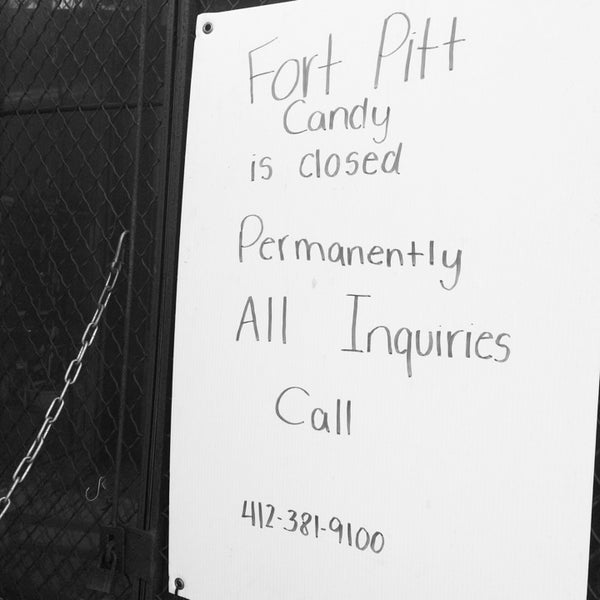 Fort Pitt
Candy
is closed
Permanently
All Inquiries
Call
412-381-9100